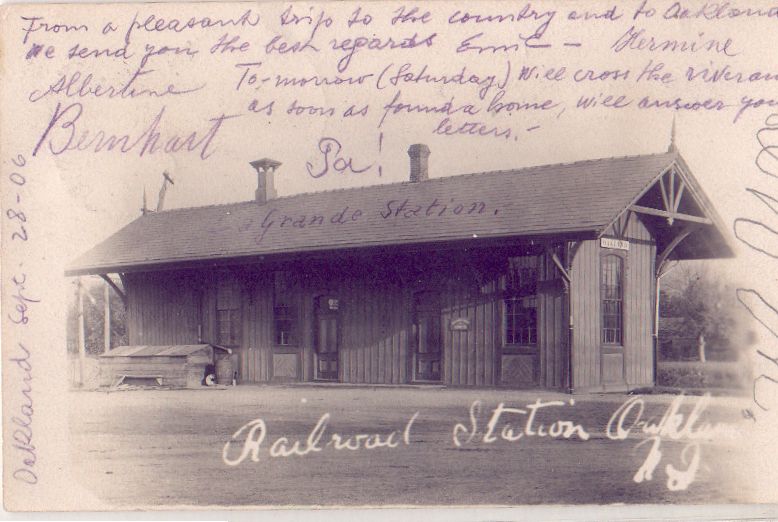 From a pleasant trip to the country and to Oakland
we send you the best regards Emil - Hermine
Albertine To-morrow (Saturday) will cross the river an
as soon as found a home, will answer you
letters.-
Bernhart
Pa!
a Grande Station.-
Oakland Sept. 28-06
OAKLAND
Railroad Station Oakland
N.J.